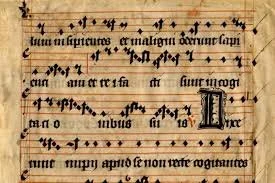 insipientes et maligni oderunt sapi
enci am et re i fa cti sunt in cogi
ta ci o nibus su is Dixe
runt impii apud se non recte cogitantes